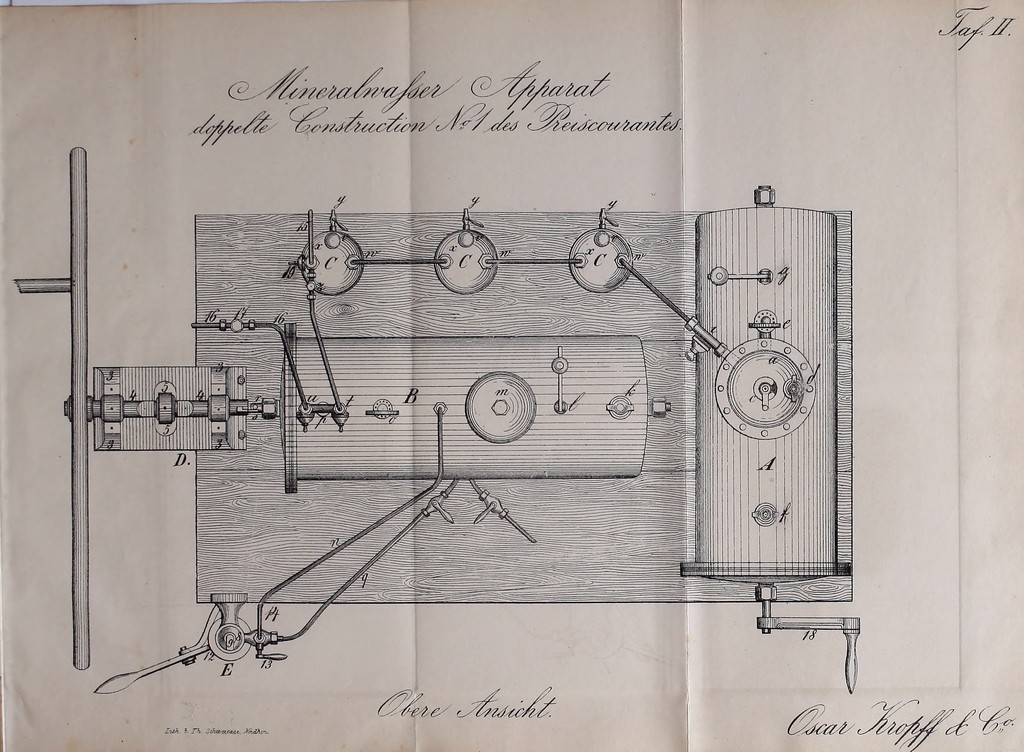 Taf. II.
Mineralwaſser Apparat
doppelte Construction No. 1 des Preiscourantes.
y y y
15 x w x w x w
C C C
g
16 17 16
e
a d
c
m
l k
B
3 3
4 5 4
u t
p
5
3 3
D.
A
f
n
q
14
9
12 13
E
18
Obere Ansicht.
Oscar Kropff & Co.